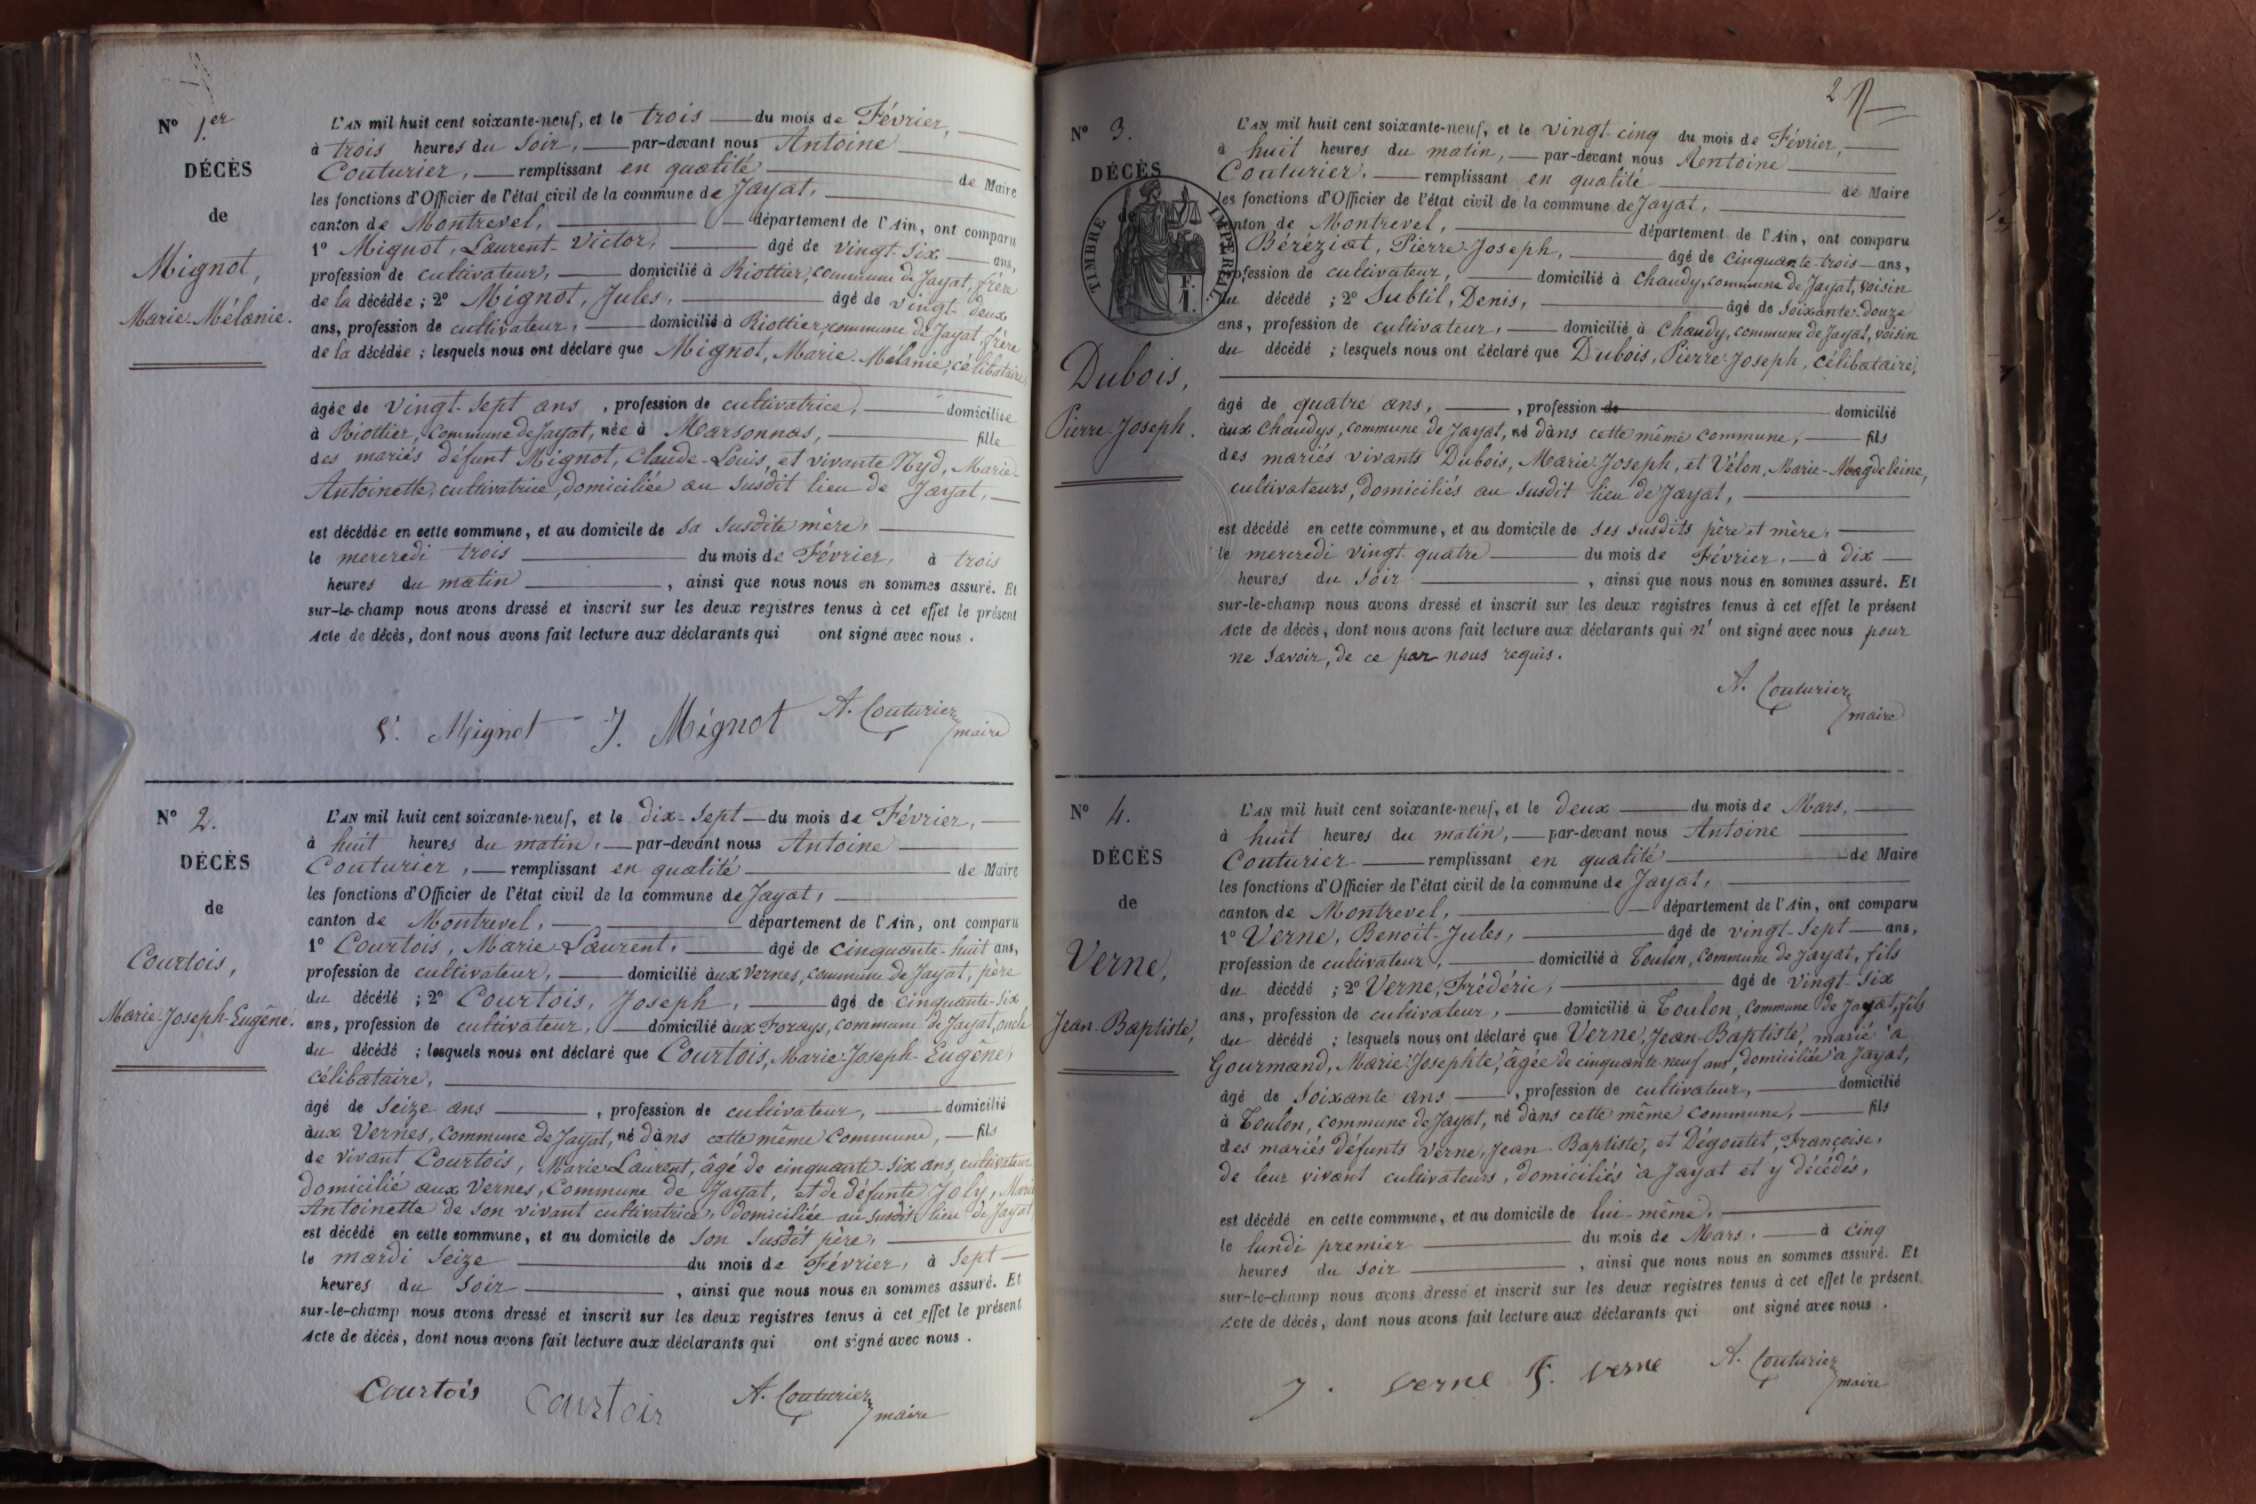 N° 1.er
DÉCÈS
de
Mignot,
Marie-Mélanie.
L'AN mil huit cent soixante-neuf, et le trois du mois de Février,
à trois heures du soir, par-devant nous Antoine
Couturier, remplissant en qualité de Maire
les fonctions d'Officier de l'état civil de la commune de Jayat,
canton de Montrevel, département de l'Ain, ont comparu
1° Mignot, Laurent-Victor, âgé de vingt-six ans,
profession de cultivateur, domicilié à Riottier, commune de Jayat, frère
de la décédée ; 2° Mignot, Jules, âgé de vingt-deux
ans, profession de cultivateur, domicilié à Riottier, commune de Jayat, frère
de la décédée ; lesquels nous ont déclaré que Mignot, Marie-Mélanie, célibataire,
âgée de vingt-sept ans, profession de cultivatrice, domiciliée
à Riottier, commune de Jayat, née à Marsonnas, fille
des mariés défunt Mignot, Claude-Louis, et vivante Nyd, Marie-
Antoinette, cultivatrice, domiciliée au susdit lieu de Jayat,
est décédée en cette commune, et au domicile de sa susdite mère,
le mercredi trois du mois de Février, à trois
heures du matin, ainsi que nous nous en sommes assuré. Et
sur-le-champ nous avons dressé et inscrit sur les deux registres tenus à cet effet le présent
Acte de décès, dont nous avons fait lecture aux déclarants qui ont signé avec nous.
Mignot J. Mignot A. Couturier
maire
N° 2.
DÉCÈS
de
Courtois,
Marie-Joseph-Eugène.
L'AN mil huit cent soixante-neuf, et le dix-sept du mois de Février,
à huit heures du matin, par-devant nous Antoine
Couturier, remplissant en qualité de Maire
les fonctions d'Officier de l'état civil de la commune de Jayat,
canton de Montrevel, département de l'Ain, ont comparu
1° Courtois, Marie-Laurent, âgé de cinquante-huit ans,
profession de cultivateur, domicilié aux Vernes, commune de Jayat, père
du décédé ; 2° Courtois, Joseph, âgé de cinquante-six
ans, profession de cultivateur, domicilié aux Forays, commune de Jayat, oncle
du décédé ; lesquels nous ont déclaré que Courtois, Marie-Joseph-Eugène,
célibataire,
âgé de seize ans, profession de cultivateur, domicilié
aux Vernes, commune de Jayat, né dans cette même commune, fils
de vivant Courtois, Marie-Laurent, âgé de cinquante-six ans, cultivateur
domicilié aux Vernes, commune de Jayat, et de défunte Joly, Marie
Antoinette de son vivant cultivatrice, domiciliée au susdit lieu de Jayat
est décédé en cette commune, et au domicile de son susdit père,
le mardi seize du mois de Février, à sept
heures du soir, ainsi que nous nous en sommes assuré. Et
sur-le-champ nous avons dressé et inscrit sur les deux registres tenus à cet effet le présent
Acte de décès, dont nous avons fait lecture aux déclarants qui ont signé avec nous.
Courtois Courtois A. Couturier
maire
2
N° 3.
DÉCÈS
de
TIMBRE IMPÉRIAL
F.
1.
Dubois,
Pierre-Joseph.
L'AN mil huit cent soixante-neuf, et le vingt-cinq du mois de Février,
à huit heures du matin, par-devant nous Antoine
Couturier, remplissant en qualité de Maire
les fonctions d'Officier de l'état civil de la commune de Jayat,
canton de Montrevel, département de l'Ain, ont comparu
Béréziat, Pierre-Joseph, âgé de cinquante-trois ans,
profession de cultivateur, domicilié à Chaudy, commune de Jayat, voisin
du décédé ; 2° Subtil, Denis, âgé de soixante-douze
ans, profession de cultivateur, domicilié à Chaudy, commune de Jayat, voisin
du décédé ; lesquels nous ont déclaré que Dubois, Pierre-Joseph, célibataire,
âgé de quatre ans, profession de domicilié
aux Chaudys, commune de Jayat, né dans cette même commune, fils
des mariés vivants Dubois, Marie-Joseph, et Vélon, Marie-Magdeleine,
cultivateurs, domiciliés au susdit lieu de Jayat,
est décédé en cette commune, et au domicile de ses susdits père et mère,
le mercredi vingt-quatre du mois de Février, à dix
heures du soir, ainsi que nous nous en sommes assuré. Et
sur-le-champ nous avons dressé et inscrit sur les deux registres tenus à cet effet le présent
Acte de décès, dont nous avons fait lecture aux déclarants qui n'ont signé avec nous pour
ne savoir, de ce par nous requis.
A. Couturier
maire
N° 4.
DÉCÈS
de
Verne,
Jean-Baptiste,
L'AN mil huit cent soixante-neuf, et le deux du mois de Mars,
à huit heures du matin, par-devant nous Antoine
Couturier remplissant en qualité de Maire
les fonctions d'Officier de l'état civil de la commune de Jayat,
canton de Montrevel, département de l'Ain, ont comparu
1° Verne, Benoit-Jules, âgé de vingt-sept ans,
profession de cultivateur, domicilié à Toulon, commune de Jayat, fils
du décédé ; 2° Verne, Frédéric, âgé de vingt-six
ans, profession de cultivateur, domicilié à Toulon, commune de Jayat, fils
du décédé ; lesquels nous ont déclaré que Verne, Jean-Baptiste, marié à
Gourmand, Marie-Josephte, âgée de cinquante-neuf ans, domiciliée à Jayat,
âgé de soixante ans, profession de cultivateur, domicilié
à Toulon, commune de Jayat, né dans cette même commune, fils
des mariés défunts Verne, Jean-Baptiste, et Dégoutit, Françoise,
de leur vivant cultivateurs, domiciliés à Jayat et y décédés,
est décédé en cette commune, et au domicile de lui-même,
le lundi premier du mois de Mars, à cinq
heures du soir, ainsi que nous nous en sommes assuré. Et
sur-le-champ nous avons dressé et inscrit sur les deux registres tenus à cet effet le présent
Acte de décès, dont nous avons fait lecture aux déclarants qui ont signé avec nous.
J. Verne F. Verne A. Couturier
maire